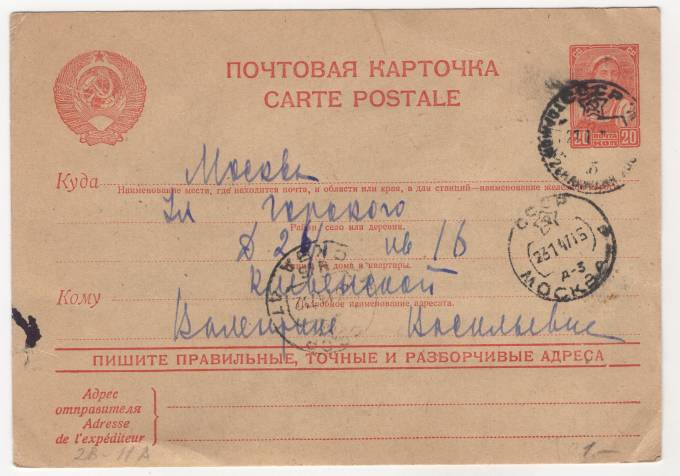 ПОЧТОВАЯ КАРТОЧКА
CARTE POSTALE
СССР
20 ПОЧТА КОП 20
Куда Москва
Наименование места, где находится почта, и области или края, а для станций—наименование железной
Ул Горского
Район, село или деревня.
Д 26 кв 16
дома и квартиры.
СССР
23 1 47 15
Д-3
МОСКВА
Кому
Подробное наименование адресата.
Валентине Васильевне
ПИШИТЕ ПРАВИЛЬНЫЕ, ТОЧНЫЕ И РАЗБОРЧИВЫЕ АДРЕСА
Адрес
отправителя
Adresse
de l'expéditeur
2В-11А
1.—